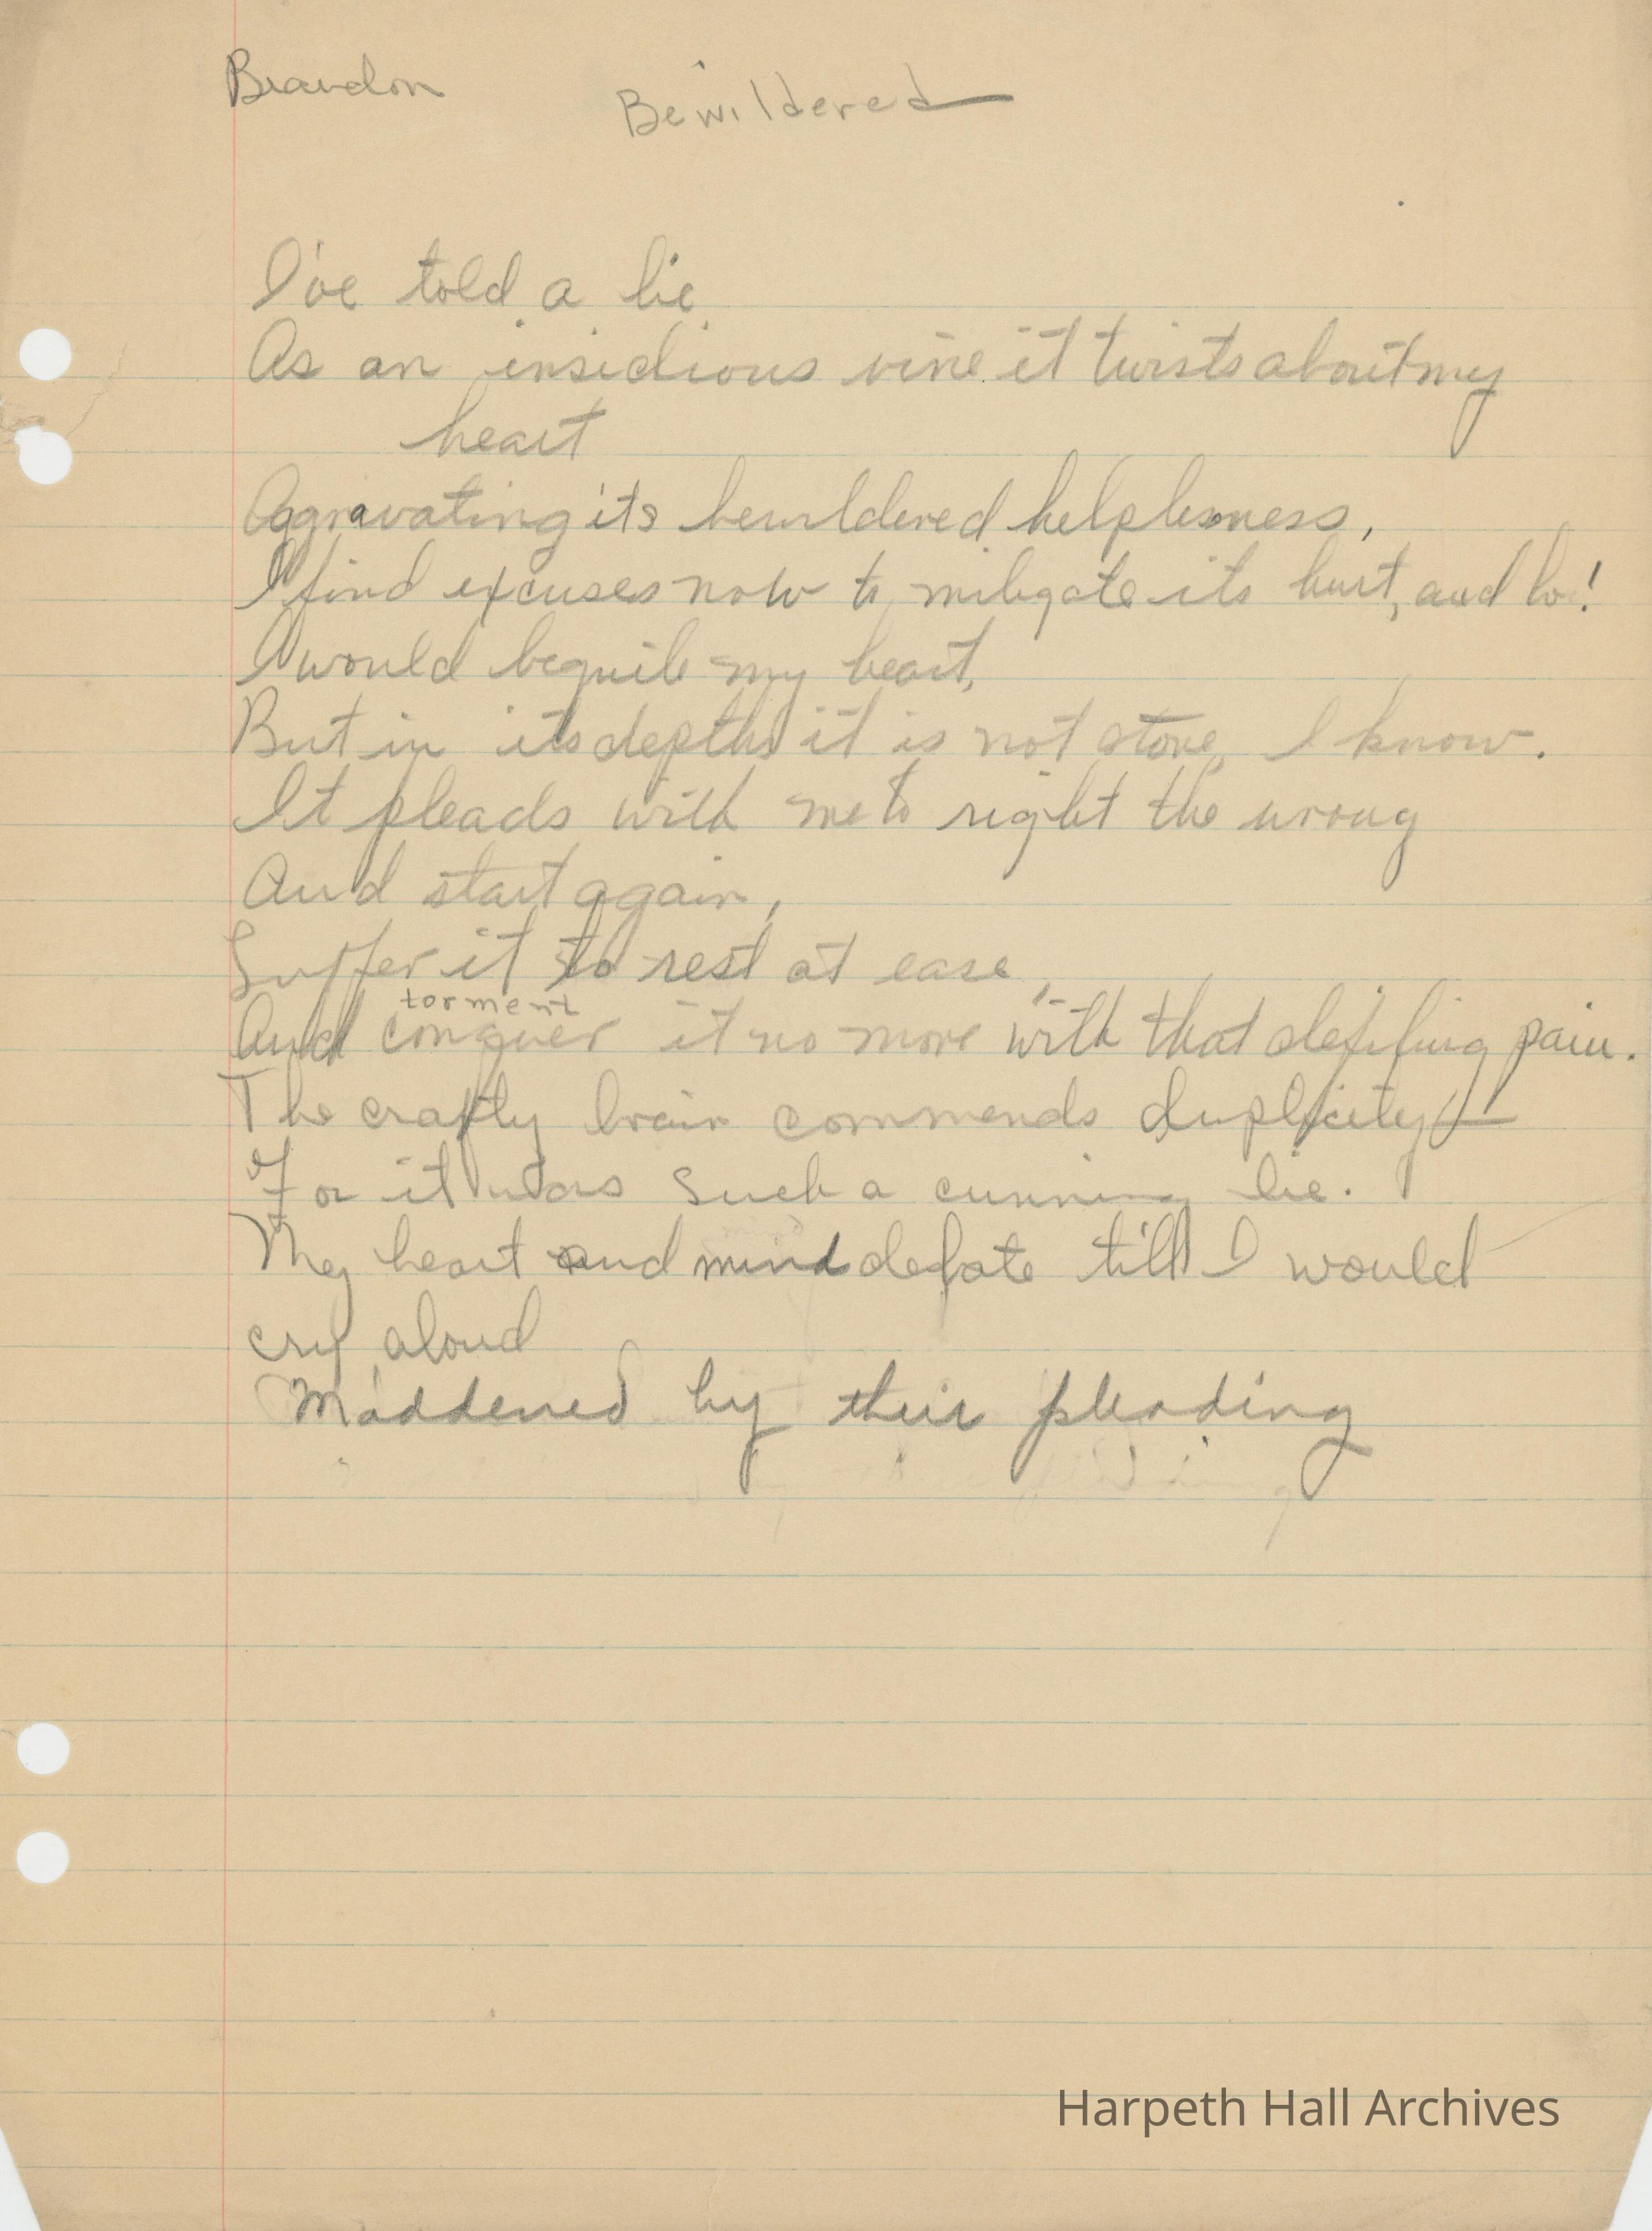 Brandon
Bewildered
I've told a lie
As an insidious vine it twists about my
heart
Aggravating its bewildered helplessness,
I find excuses now to mitigate its hurt, and lo!
I would beguile my heart,
But in its depths it is not stone, I know.
It pleads with me to right the wrong
And start again,
Suffer it to rest at ease,
torment
And conquer it no more with that defiling pain.
The crafty brain commends duplicity! —
For it was such a cunning lie.
My heart and mind debate till I would
cry aloud
Maddened by their pleading
Harpeth Hall Archives